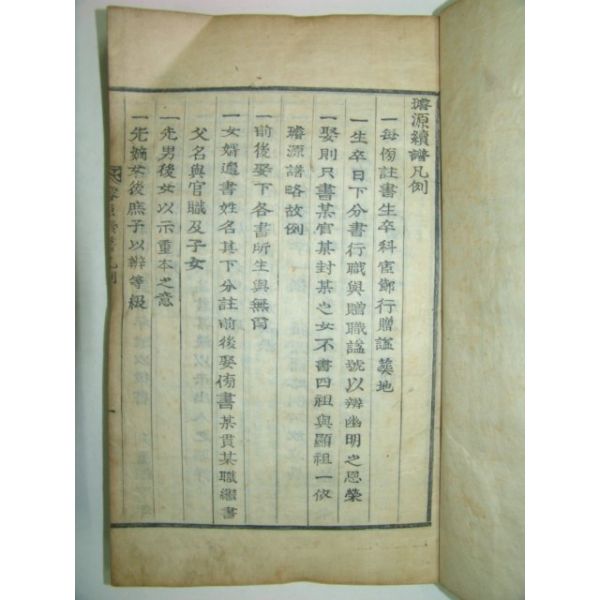 璿源續譜凡例
一每傍註書生卒科宦鄕行贈諡葬地
一生卒日下分書行職與贈職諡號以辨幽明之恩榮
一娶則只書某官某封某之女不書四祖與顯祖一依
璿源譜略故例
一前後娶下各書所生與無育
一女婿邊書姓名其下分註前後娶傍書某貫某職繼書
父名與官職及子女
一先男後女以示重本之意
一先嫡後庶子以辨等級